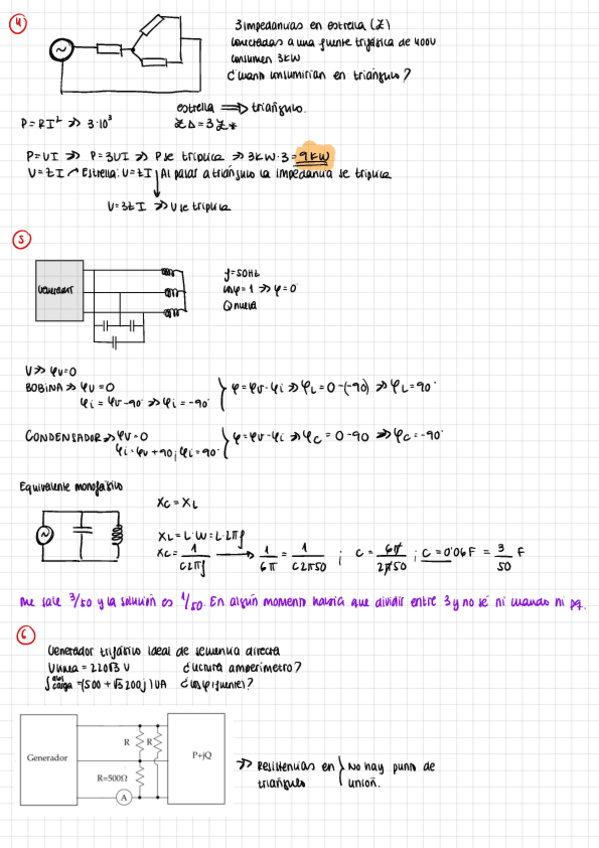 4
3 impedancias en estrella (Z)
conectadas a una fuente trifásica de 400V
consumen 3kW
¿cuanto consumirian en triángulo?
estrella ⟹ triangulo.
P=RI² ⇒ 3·10³
Z△=3Z*
P=UI ⇒ P=3UI ⇒ P se triplica ⇒ 3kW·3=9kW
U=ZI Estrella: U=ZI Al pasar a triángulo la impedancia se triplica
U=3ZI ⇒ U se triplica
5
Generador
f=50Hz
cosφ=1 ⇒ φ=0
Q nueva
V⇒φv=0
BOBINA⇒φv=0
φi=φv-90 ⇒ φi=-90°
φ=φv-φi ⇒ φL=0-(-90) ⇒ φL=90°
CONDENSADOR⇒φv=0
φi=φv+90; φi=90°
φ=φv-φi ⇒ φc=0-90 ⇒ φc=-90°
Equivalente monofásico
Xc=XL
XL=L·W=L·2πf
Xc=1/C2πf → 1/6π = 1/C2π50 ; C=6π/2π50 ; C=0'06F = 3/50 F
me sale 3/50 y la solución es 1/50. En algún momento habría que dividir entre 3 y no sé ni cuando ni pq.
6
Generador trifásico ideal de secuencia directa
U linea = 220√3 V ¿Lectura amperimetro?
carga =(500+√3 200j)UA ¿cosφ(fuente)?
Generador
R
R
R=500Ω
A
P+jQ
⇒ Resistencias en triangulo
No hay punto de unión.